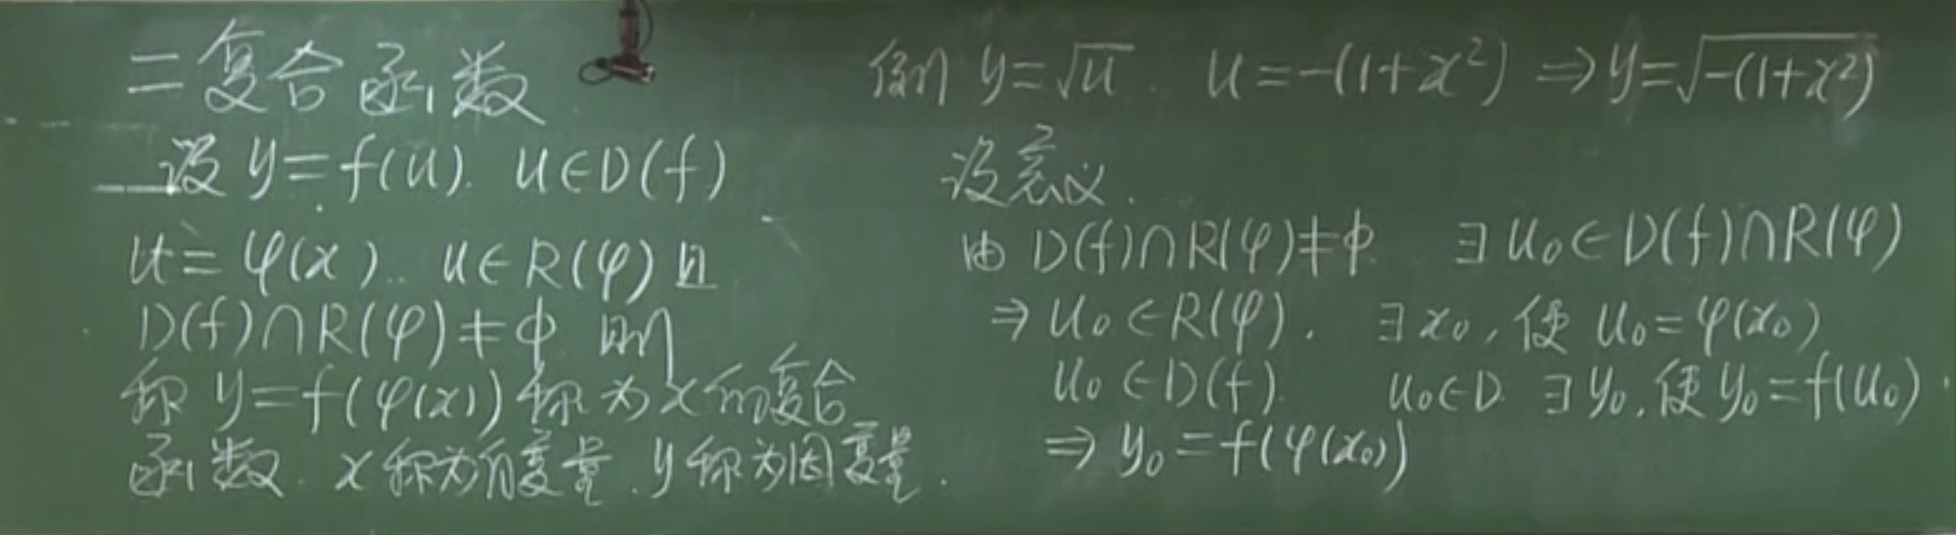 二 复合函数
设 y=f(u). u∈D(f)
u=φ(x). u∈R(φ) 且
D(f)∩R(φ)≠ϕ 则
称 y=f(φ(x)) 称为 x 的复合
函数. x 称为自变量. y 称为因变量.
例 y=√u. u=-(1+x²) ⇒ y=√(-(1+x²))
没意义.
由 D(f)∩R(φ)≠ϕ. ∃ u₀∈D(f)∩R(φ)
⇒ u₀∈R(φ). ∃ x₀, 使 u₀=φ(x₀)
u₀∈D(f). u₀∈D. ∃ y₀, 使 y₀=f(u₀)
⇒ y₀=f(φ(x₀))